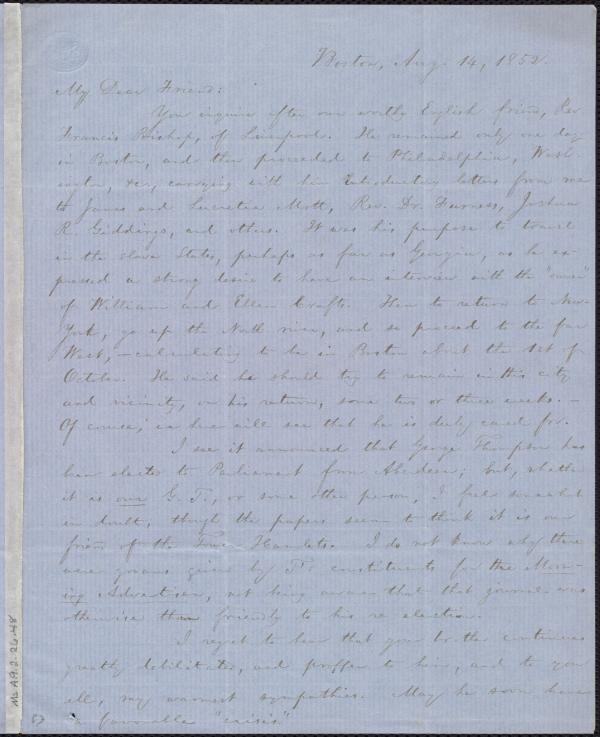 Boston, Aug. 14, 1852.
My Dear Friend:
You inquire after our worthy English friend, Rev.
Francis Bishop, of Liverpool. He remained only one day
in Boston, and then proceeded to Philadelphia, Wash-
ington, &c., carrying with him introductory letters from me
to James and Lucretia Mott, Rev. Dr. Furness, Joshua
R. Giddings, and others. It was his purpose to travel
in the slave States, perhaps as far as Georgia, as he ex-
pressed a strong desire to have an interview with the "owner"
of William and Ellen Crafts. Then to return to New-
York, go up the North river, and so proceed to the far
West,—calculating to be in Boston about the 1st of
October. He said he should try to remain in this city
and vicinity, on his return, some two or three weeks.—
Of course, we will see that he is duly cared for.
I see it announced that George Thompson has
been elected to Parliament from Aberdeen; but, whether
it is our G. T., or some other person, I feel somewhat
in doubt, though the papers seem to think it is our
friend of the Tower Hamlets. I do not know why there
were groans given by T's constituents for the Morn-
ing Advertiser, not being aware that that journal was
otherwise than friendly to his re election.
I regret to hear that your brother continues
greatly debilitated, and proffer to him, and to you
all, my warmest sympathies. May he soon have
a favorable "crisis"
Ms A.9.2.26.48